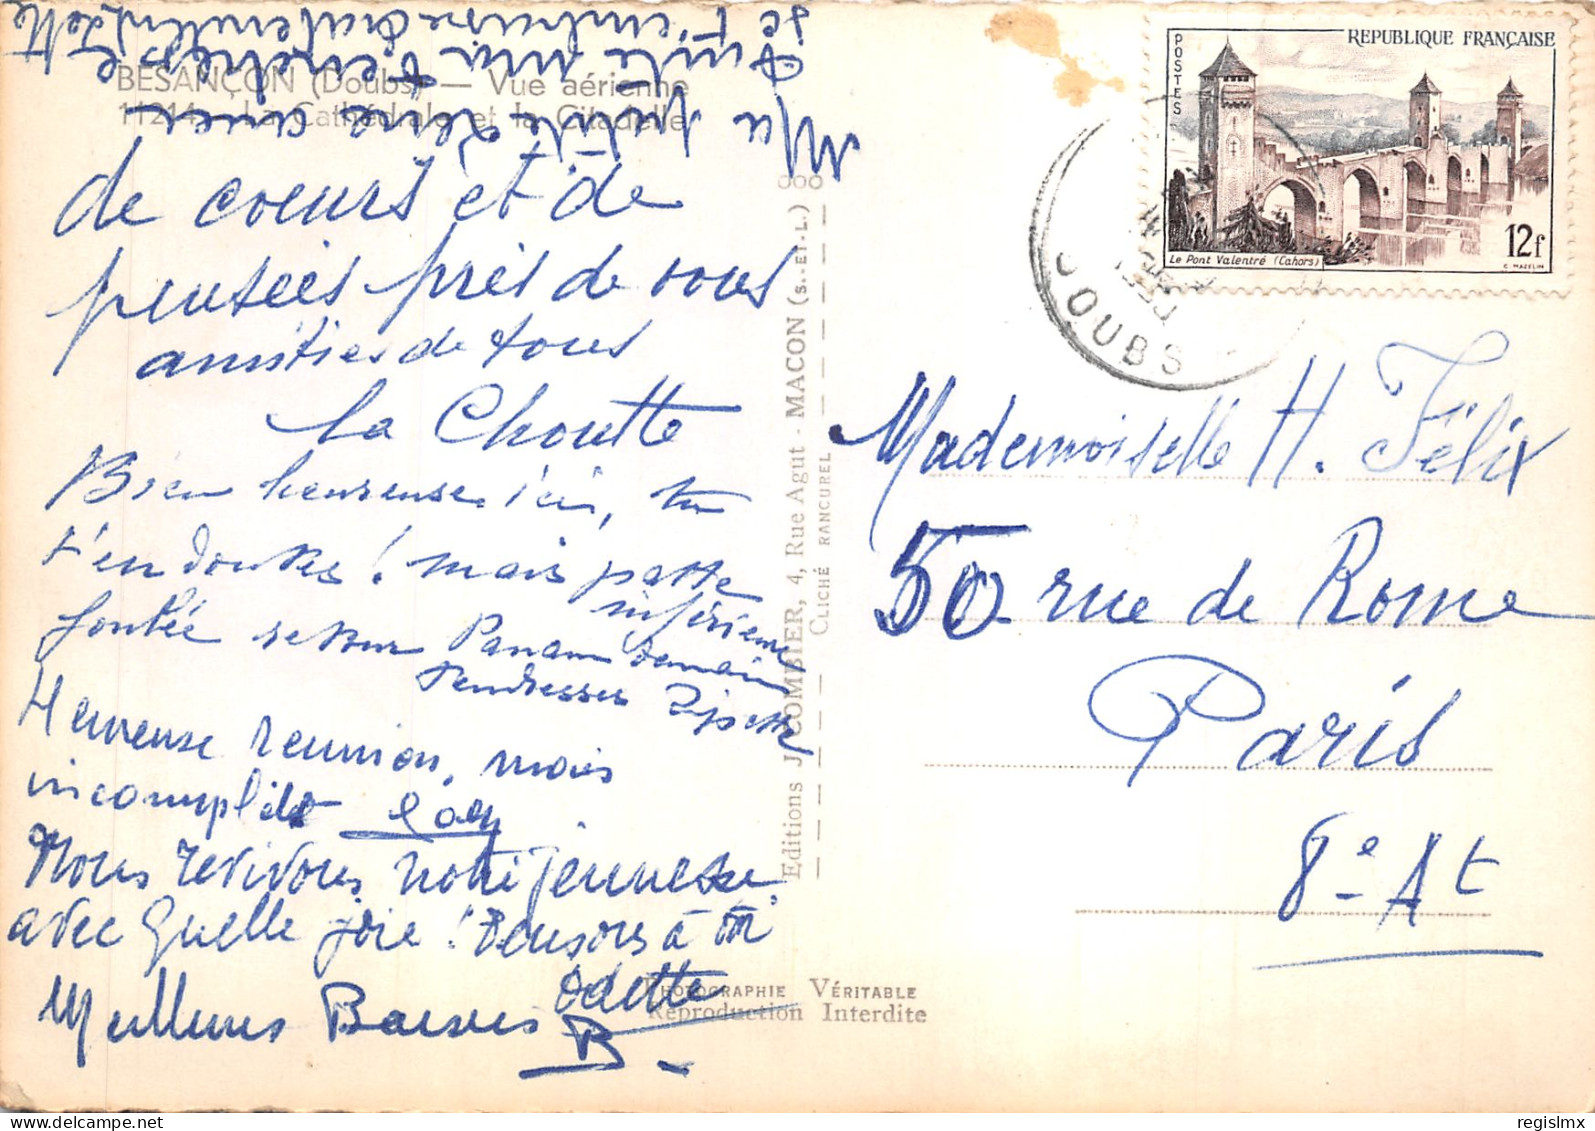 BESANÇON (Doubs) — Vue aérienne
11214 - La Cathédrale et la Citadelle
Ma petite
Suite
se t'embrasse
de coeurs et de
pensées près de vous
amitiés de tous
la Chouette
Bien heureuse ici, tu
t'en doutes ! mais patte
inférieure
foulée retour Panam demain
tendresses Zipette
Heureuse réunion, mais
incomplète
Nous revivons notre jeunesse
avec quelle joie ! Pensons à toi
Odette
Meilleurs Baisers
B.
Editions J. COMBIER, 4, Rue Agut - MACON (S.-ET-L.)
CLICHÉ RANCUREL
PHOTOGRAPHIE VÉRITABLE
Reproduction Interdite
POSTES
REPUBLIQUE FRANÇAISE
Le Pont Valentré (Cahors)
12f
C. MAZELIN
DOUBS
Mademoiselle H. Félix
50 rue de Rome
Paris
8e At
regislmx